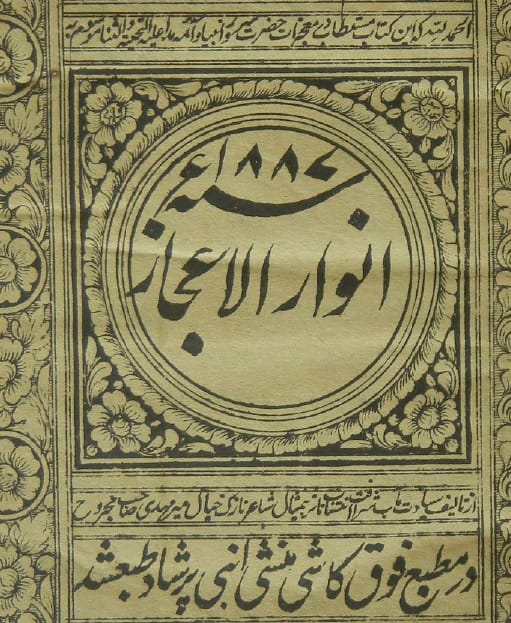 الحمد لله کہ این کتاب مستطاب در معجزات حضرت سرور انبیا علیہ التحیة والثنا موسوم بہ
سنہ ۱۸۸۷ء
انوار الاعجاز
از تالیف سیادت مآب شرافت انتساب ناثر بیمثال شاعر نازک خیال میر مہدی صاحب مجروح
در مطبع فوق کاشی منشی انبی پرشاد طبع شد